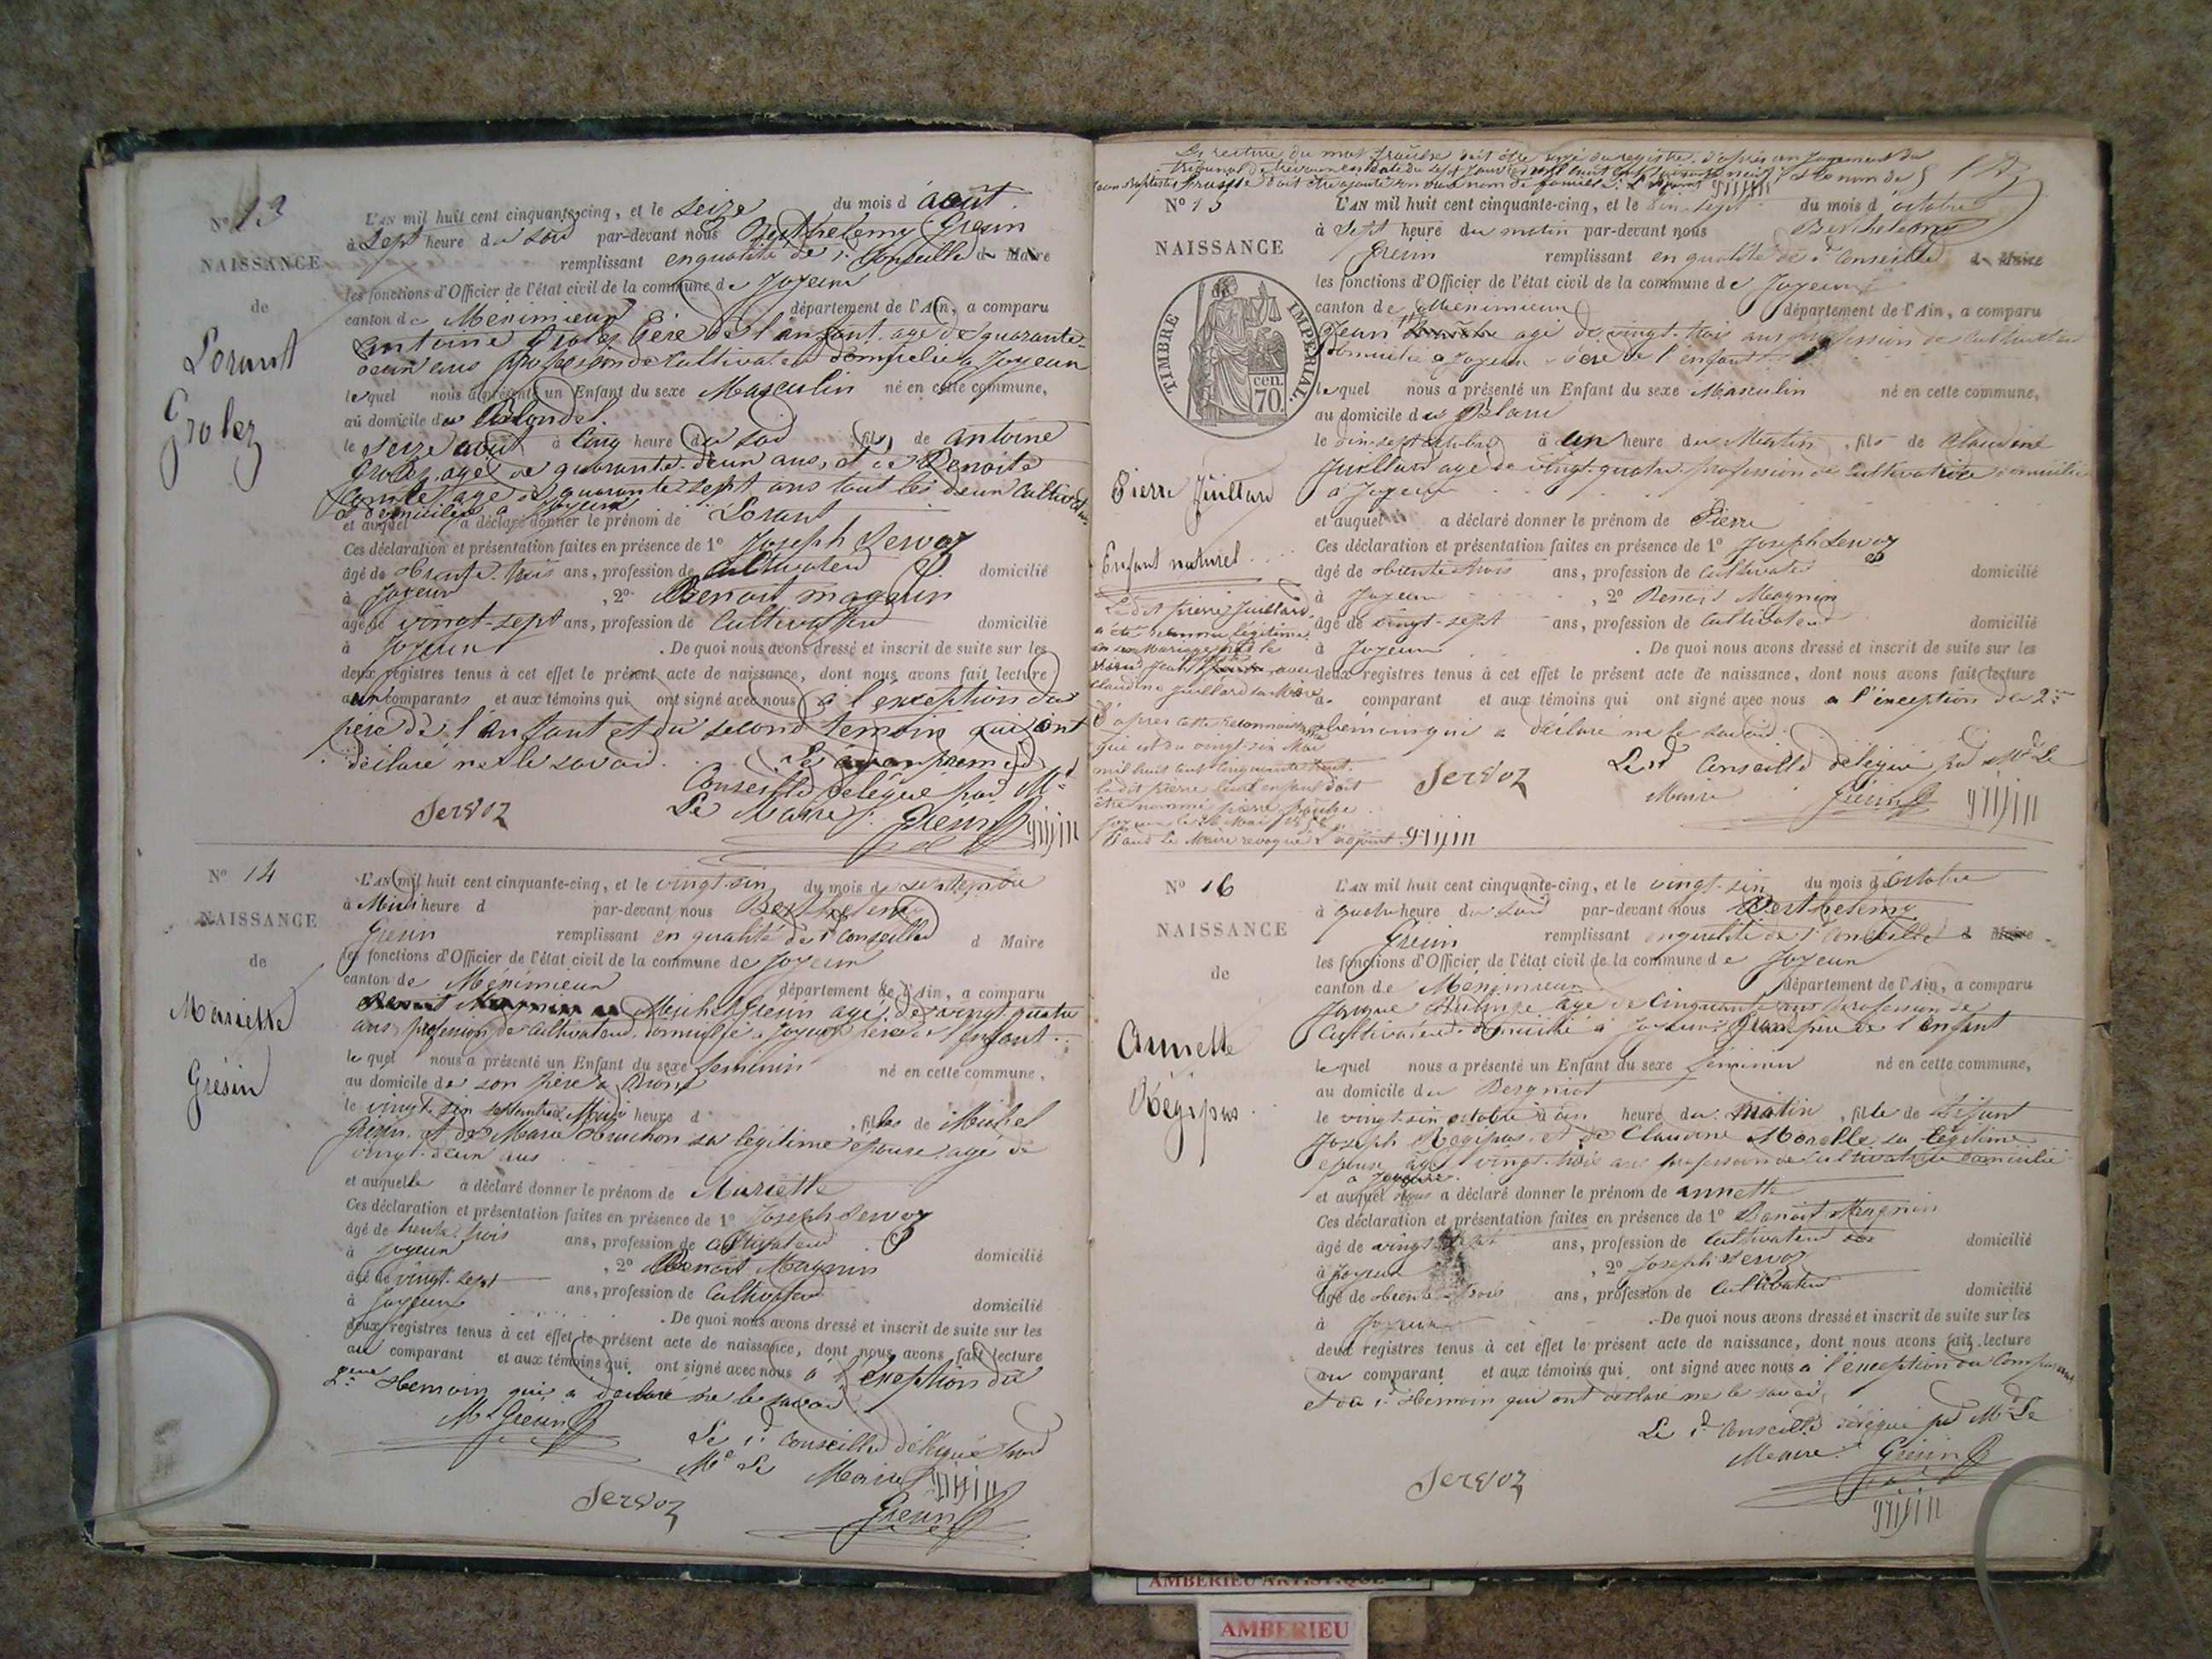 N° 13
NAISSANCE
de
Lorant
Grolez
L'AN mil huit cent cinquante-cinq, et le seize du mois d'août.
à Sept heure du soir par-devant nous Berthelemy Gresin
remplissant en qualité de 1r Conseillé d Maire
les fonctions d'Officier de l'état civil de la commune de Joyeux
canton de Meximieux département de l'Ain, a comparu
antoine Grolez Père de l'enfant agé de quarante
deux ans profession de Cultivateur domicilié a Joyeux
lequel nous a présenté un Enfant du sexe Masculin né en cette commune,
au domicile du
le seize août à Cinq heure du soir, fils de antoine
Grolez agé de quarante deux ans, et de Benoite
Comte agé de quarante sept ans tout les deux Cultivateurs
et domiciliés a Joyeux
et auquel a déclaré donner le prénom de Lorant
Ces déclaration et présentation faites en présence de 1° Joseph Servoz
âgé de trente-trois ans, profession de Cultivateur domicilié
à Joyeux, 2° Benoit magnin
âgé de vingt-sept ans, profession de Cultivateur domicilié
à Joyeux. De quoi nous avons dressé et inscrit de suite sur les
deux registres tenus à cet effet le présent acte de naissance, dont nous avons fait lecture
aux comparants et aux témoins qui ont signé avec nous à l'exception du
père de l'enfant et du second temoin qui ont
déclaré ne le savoir.
Conseillé délégué par Mr
Le Maire
Servoz Gresin
N° 14
NAISSANCE
de
Mariette
Gresin
L'AN mil huit cent cinquante-cinq, et le vingt-six du mois de septembre
à Midi heure d par-devant nous Berthelemy
Gresin remplissant en qualité de 1r Conseillé d Maire
les fonctions d'Officier de l'état civil de la commune de Joyeux
canton de Méximieux département de l'Ain, a comparu
Michel Gresin agé de vingt quatre
ans profession de Cultivateur domicilié a Joyeux Père de l'enfant
lequel nous a présenté un Enfant du sexe feminin né en cette commune,
au domicile de son père a
le vingt-six septembre Midi heure d, filles de Michel
Gresin et de Marie Bruchon sa légitime épouse agé de
vingt-deux ans
et auquelle a déclaré donner le prénom de Mariette
Ces déclaration et présentation faites en présence de 1° Joseph Servoz
âgé de trente-trois ans, profession de Cultivateur
à Joyeux, 2° Benoit Magnin domicilié
âgé de vingt-sept ans, profession de Cultivateur
à Joyeux domicilié
. De quoi nous avons dressé et inscrit de suite sur les
deux registres tenus à cet effet le présent acte de naissance, dont nous avons fait lecture
au comparant et aux témoins qui ont signé avec nous à l'exception du
2me temoin qui a déclaré ne le savoir
Ml Gresin
Le 1r Conseillé délégué par
Mr Le Maire
Servoz
Gresin
N° 15
NAISSANCE
TIMBRE IMPÉRIAL.
70 cen.
Pierre Juillard
Enfant naturel
Le dit pierre Juillard
a été reconnu légitime
Claudine Juillard sa Mère
D'apres cette reconnaissance
qui est du vingt-six Mai
mil huit cent cinquante huit
le dit pierre
être nommé pierre
L'AN mil huit cent cinquante-cinq, et le dix-sept du mois d'octobre
à Sept heure du matin par-devant nous Berthelemy
Gresin remplissant en qualité de 1r Conseillé d Maire
les fonctions d'Officier de l'état civil de la commune de Joyeux
canton de Meximieux département de l'Ain, a comparu
Jean agé de vingt-trois ans profession de Cultivateur
domicilié a Joyeux père de l'enfant
lequel nous a présenté un Enfant du sexe Masculin né en cette commune,
au domicile du
le dix-sept octobre à un heure du Matin, fils de Claudine
Juillard agé de vingt-quatre profession de Cultivatrice domicilié
à Joyeux
et auquel a déclaré donner le prénom de Pierre
Ces déclaration et présentation faites en présence de 1° Joseph Servoz
âgé de trente trois ans, profession de Cultivateur domicilié
à Joyeux, 2° Benoit Magnin
âgé de vingt-sept ans, profession de Cultivateur domicilié
à Joyeux. De quoi nous avons dressé et inscrit de suite sur les
deux registres tenus à cet effet le présent acte de naissance, dont nous avons fait lecture
au comparant et aux témoins qui ont signé avec nous a l'exception du 2me
témoin qui a déclaré ne le savoir.
Le 1r Conseillé délégué par Mr Le
Servoz Maire Gresin
N° 16
NAISSANCE
de
Annette
Régipas
L'AN mil huit cent cinquante-cinq, et le vingt-six du mois d'octobre
à quatre heure du soir par-devant nous Berthelemy
Gresin remplissant en qualité de 1r Conseillé d Maire
les fonctions d'Officier de l'état civil de la commune de Joyeux
canton de Méximieux département de l'Ain, a comparu
agé de Cinquante ans profession de
Cultivateur domicilié à Joyeux père de l'enfant
lequel nous a présenté un Enfant du sexe féminin né en cette commune,
au domicile du
le vingt-six octobre à un heure du matin, fille de défunt
Joseph Régipas et de Claudine Morelle sa légitime
épouse âgé vingt-trois ans profession de Cultivatrice domicilié
a Joyeux
et auquel a déclaré donner le prénom de annette
Ces déclaration et présentation faites en présence de 1° Benoit Magnin
âgé de vingt sept ans, profession de Cultivateur domicilié
à Joyeux, 2° Joseph Servoz
âgé de trente-trois ans, profession de Cultivateur domicilié
à Joyeux. De quoi nous avons dressé et inscrit de suite sur les
deux registres tenus à cet effet le présent acte de naissance, dont nous avons fait lecture
au comparant et aux témoins qui ont signé avec nous a l'exception du Comparant
et du 1r témoin qui ont déclaré ne le savoir
Le 1r Conseillé délégué par Mr Le
Maire Gresin
Servoz
AMBERIEU ARTISTIQUE
AMBERIEU